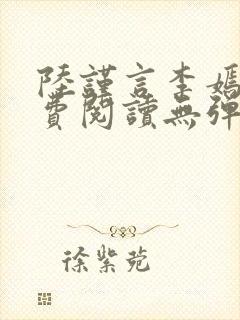 陸謹言李媽
費閱讀無彈
徐紫菀